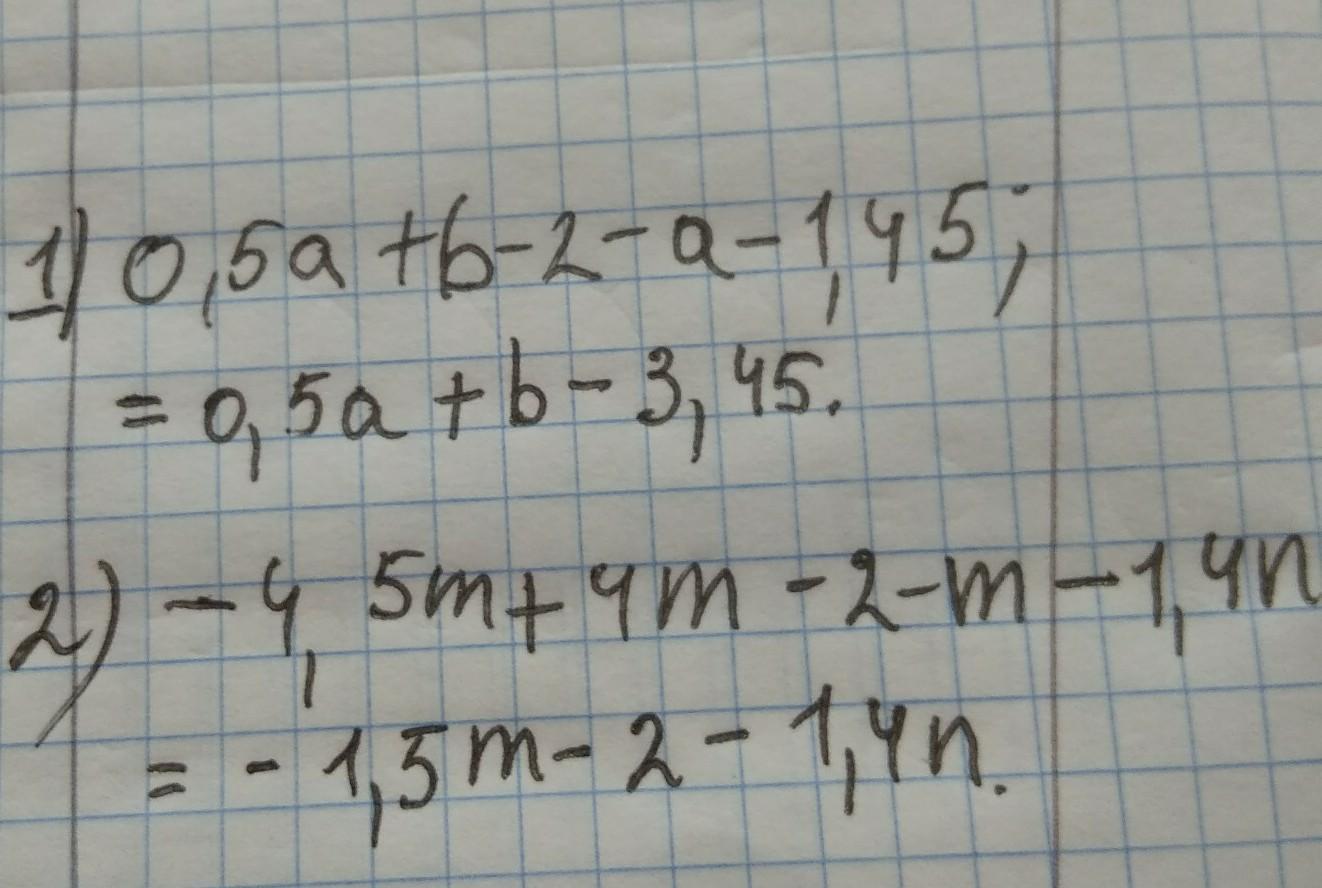 1) 0,5a+b-2-a-1,45;
= 0,5a+b-3,45.
2) -4,5m+4m-2-m-1,4n
= -1,5m-2-1,4n.